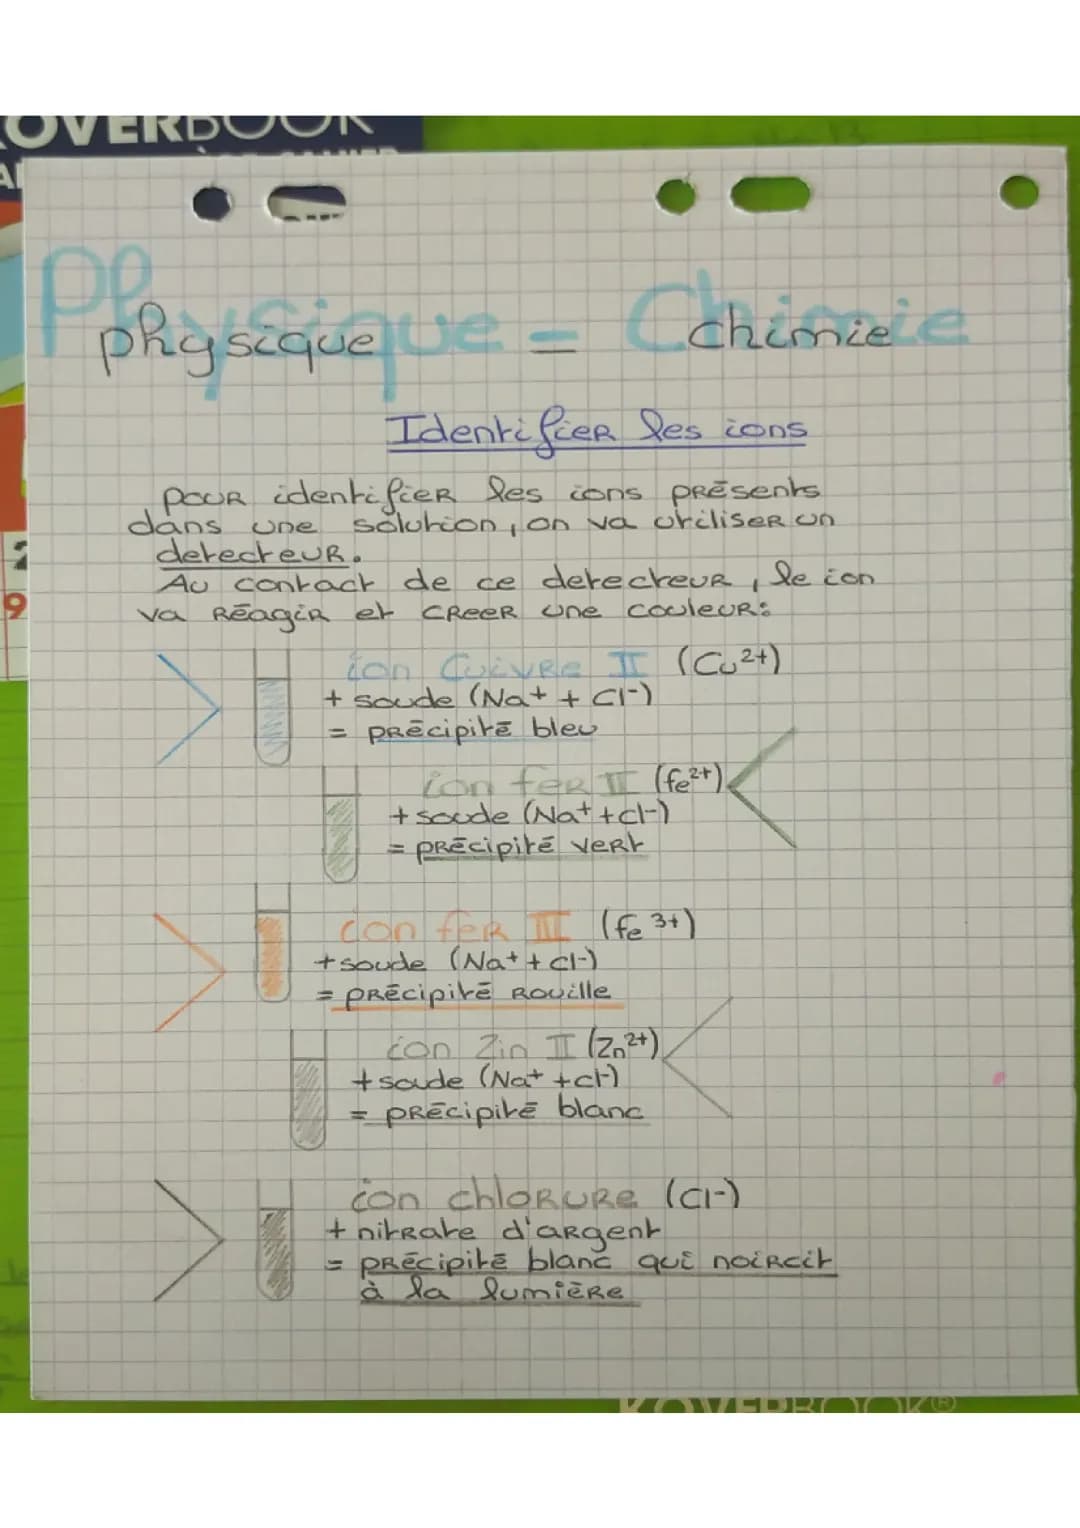 OVERBOOK
Physique - Chimie
physique chimie
Identifier les ions
pour identifier les ions présents
dans une solution, on va utiliser un
detecteur.
Au contact de ce detecteur, le ion
va réagir et creer une couleur:
ion Cuivre II (Cu²⁺)
+ soude (Na+ + Cl-)
= précipité bleu
ion fer II (fe²⁺)
+ soude (Na+ + cl-)
= précipité vert
ion fer III (fe 3+)
+ soude (Na+ + cl-)
= précipité rouille
ion Zin II (Zn²⁺)
+ soude (Na+ + cl-)
= précipité blanc
ion chlorure (Cl-)
+ nitrate d'argent
= précipité blanc qui noircit
à la lumière
KOVERBOOK®